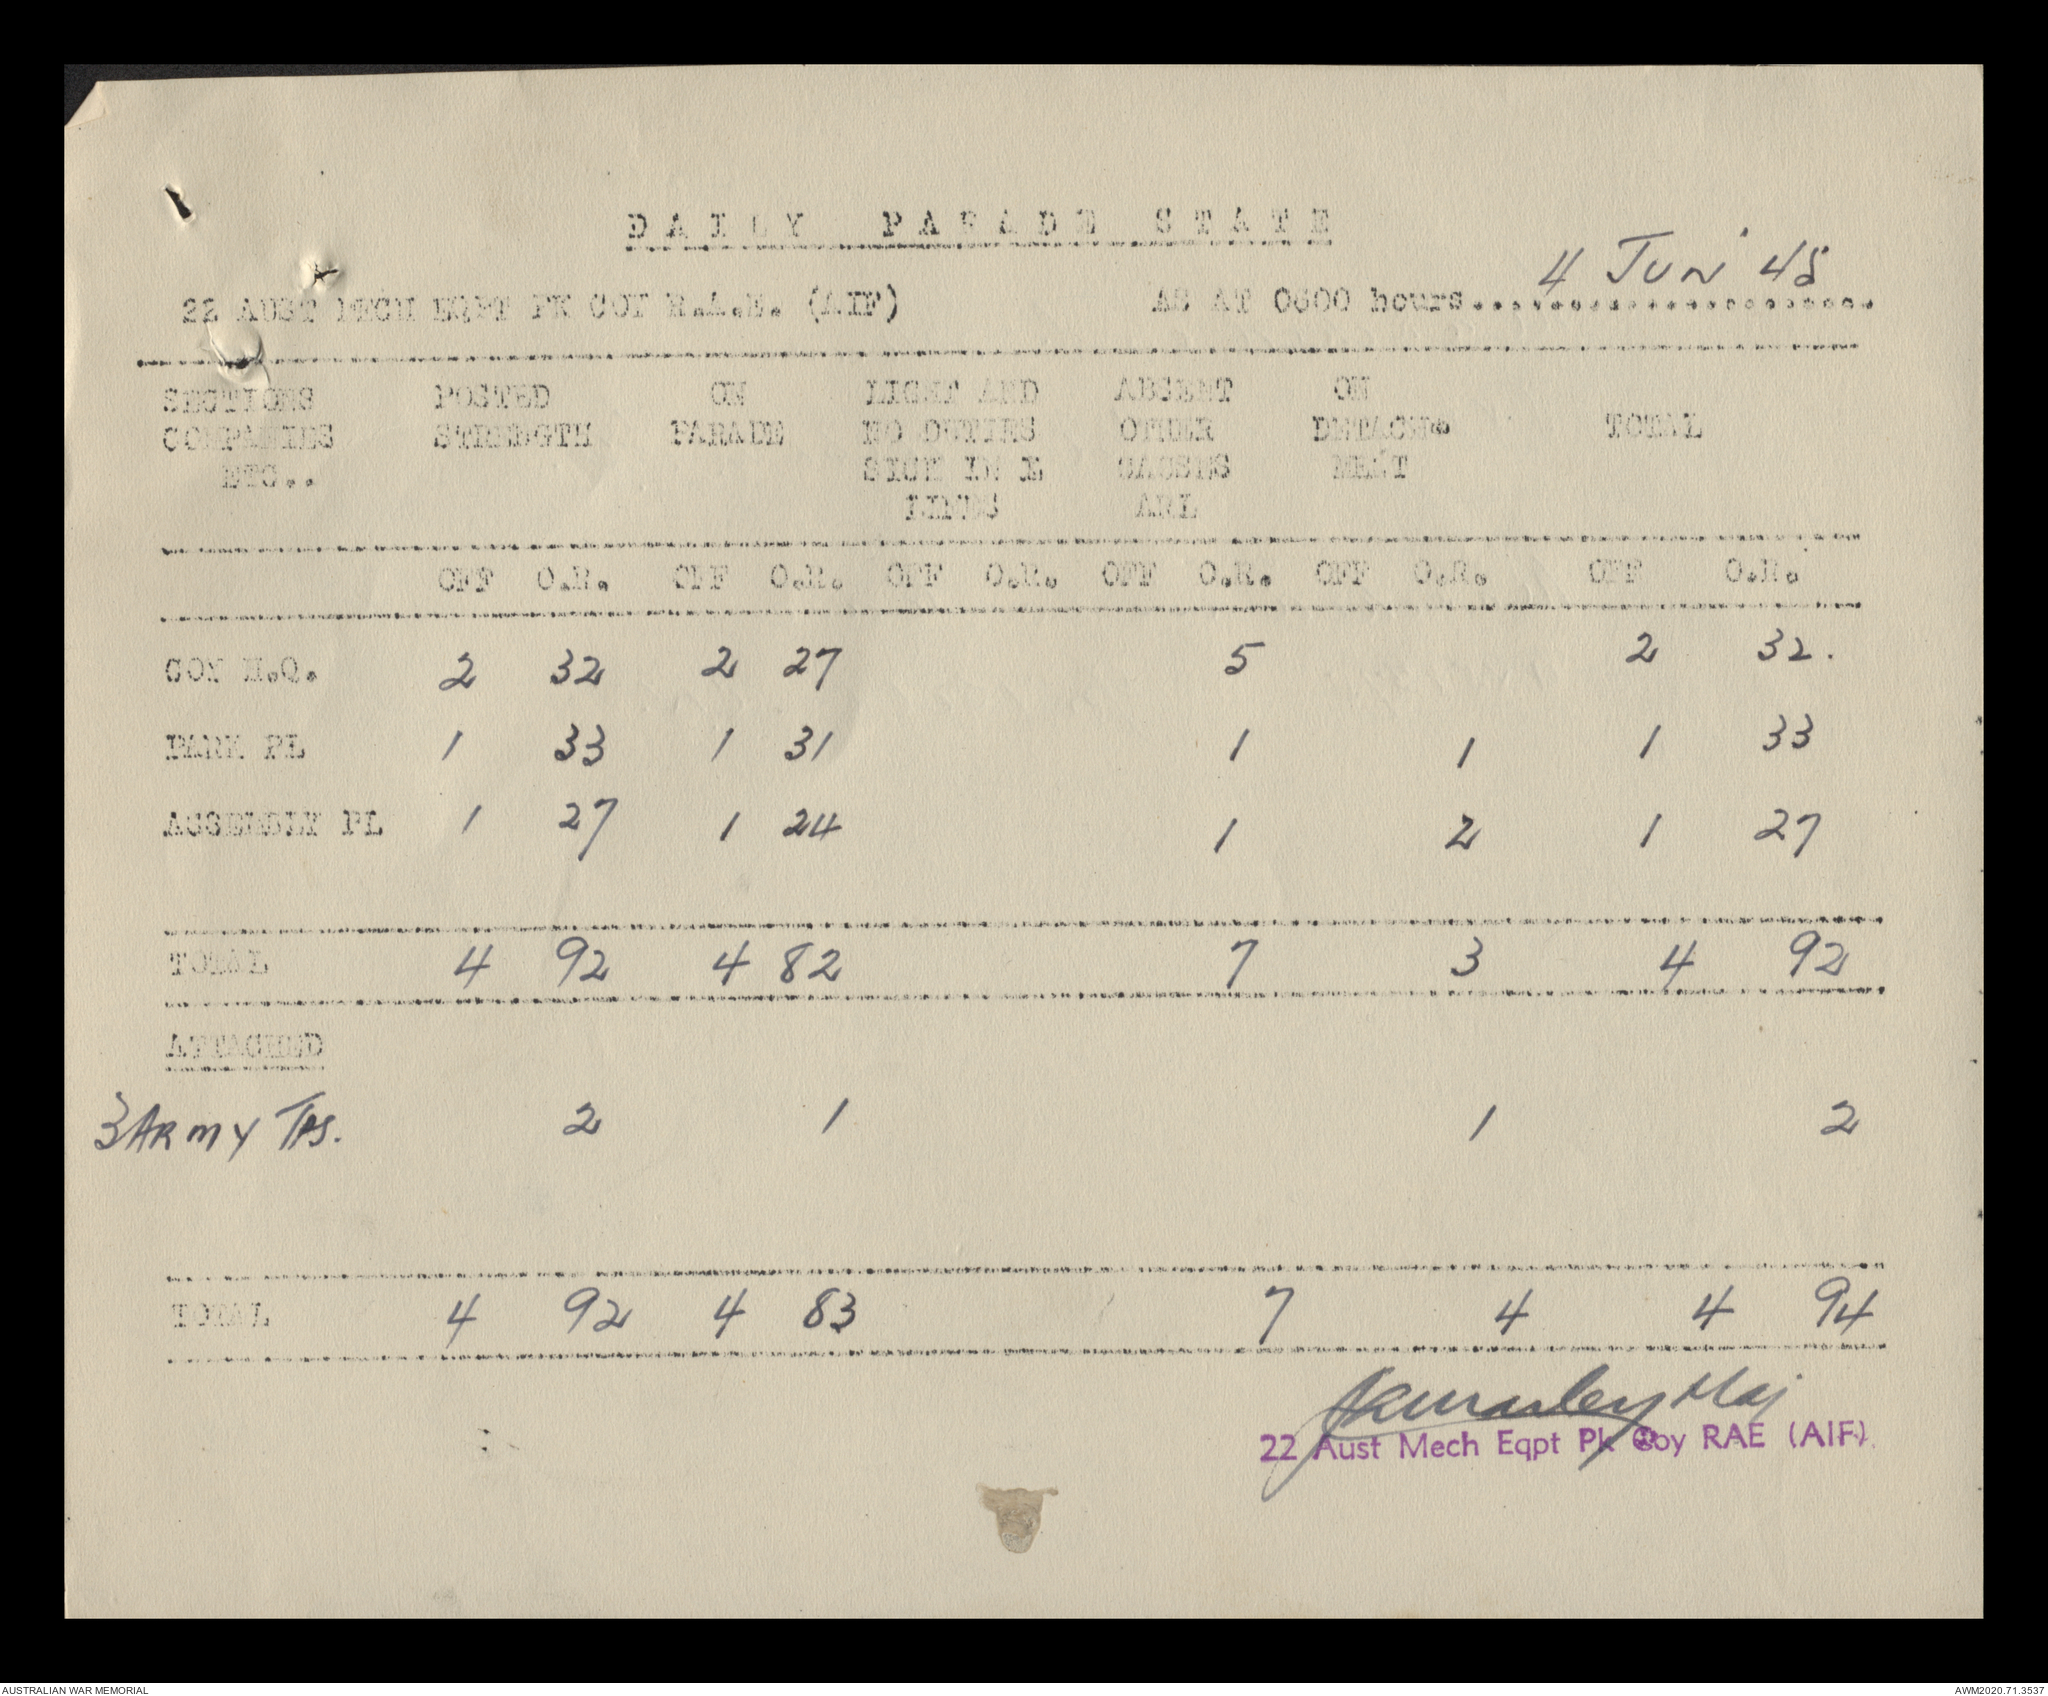 DAILY PARADE STATE
4 JUN 45
22 AUST MECH EQPT PK COY R.A.E. (AIF) AS AT 0600 hours....................
SECTIONS POSTED ON LIGHT AND ABSENT ON
COMPANIES STRENGTH PARADE NO DUTIES OTHER DETACH- TOTAL
ETC.. SICK IN L CAUSES MENT
LINES AWL
OFF O.R. OFF O.R. OFF O.R. OFF O.R. OFF O.R. OFF O.R.
COY H.Q. 2 32 2 27 5 2 32.
PARK PL 1 33 1 31 1 1 1 33
ASSEMBLY PL 1 27 1 24 1 2 1 27
TOTAL 4 92 4 82 7 3 4 92
ATTACHED
3 ARMY TPS. 2 1 1 2
TOTAL 4 92 4 83 7 4 4 94
Maj
22 Aust Mech Eqpt Pk Coy RAE (AIF)
AUSTRALIAN WAR MEMORIAL AWM2020.71.3537